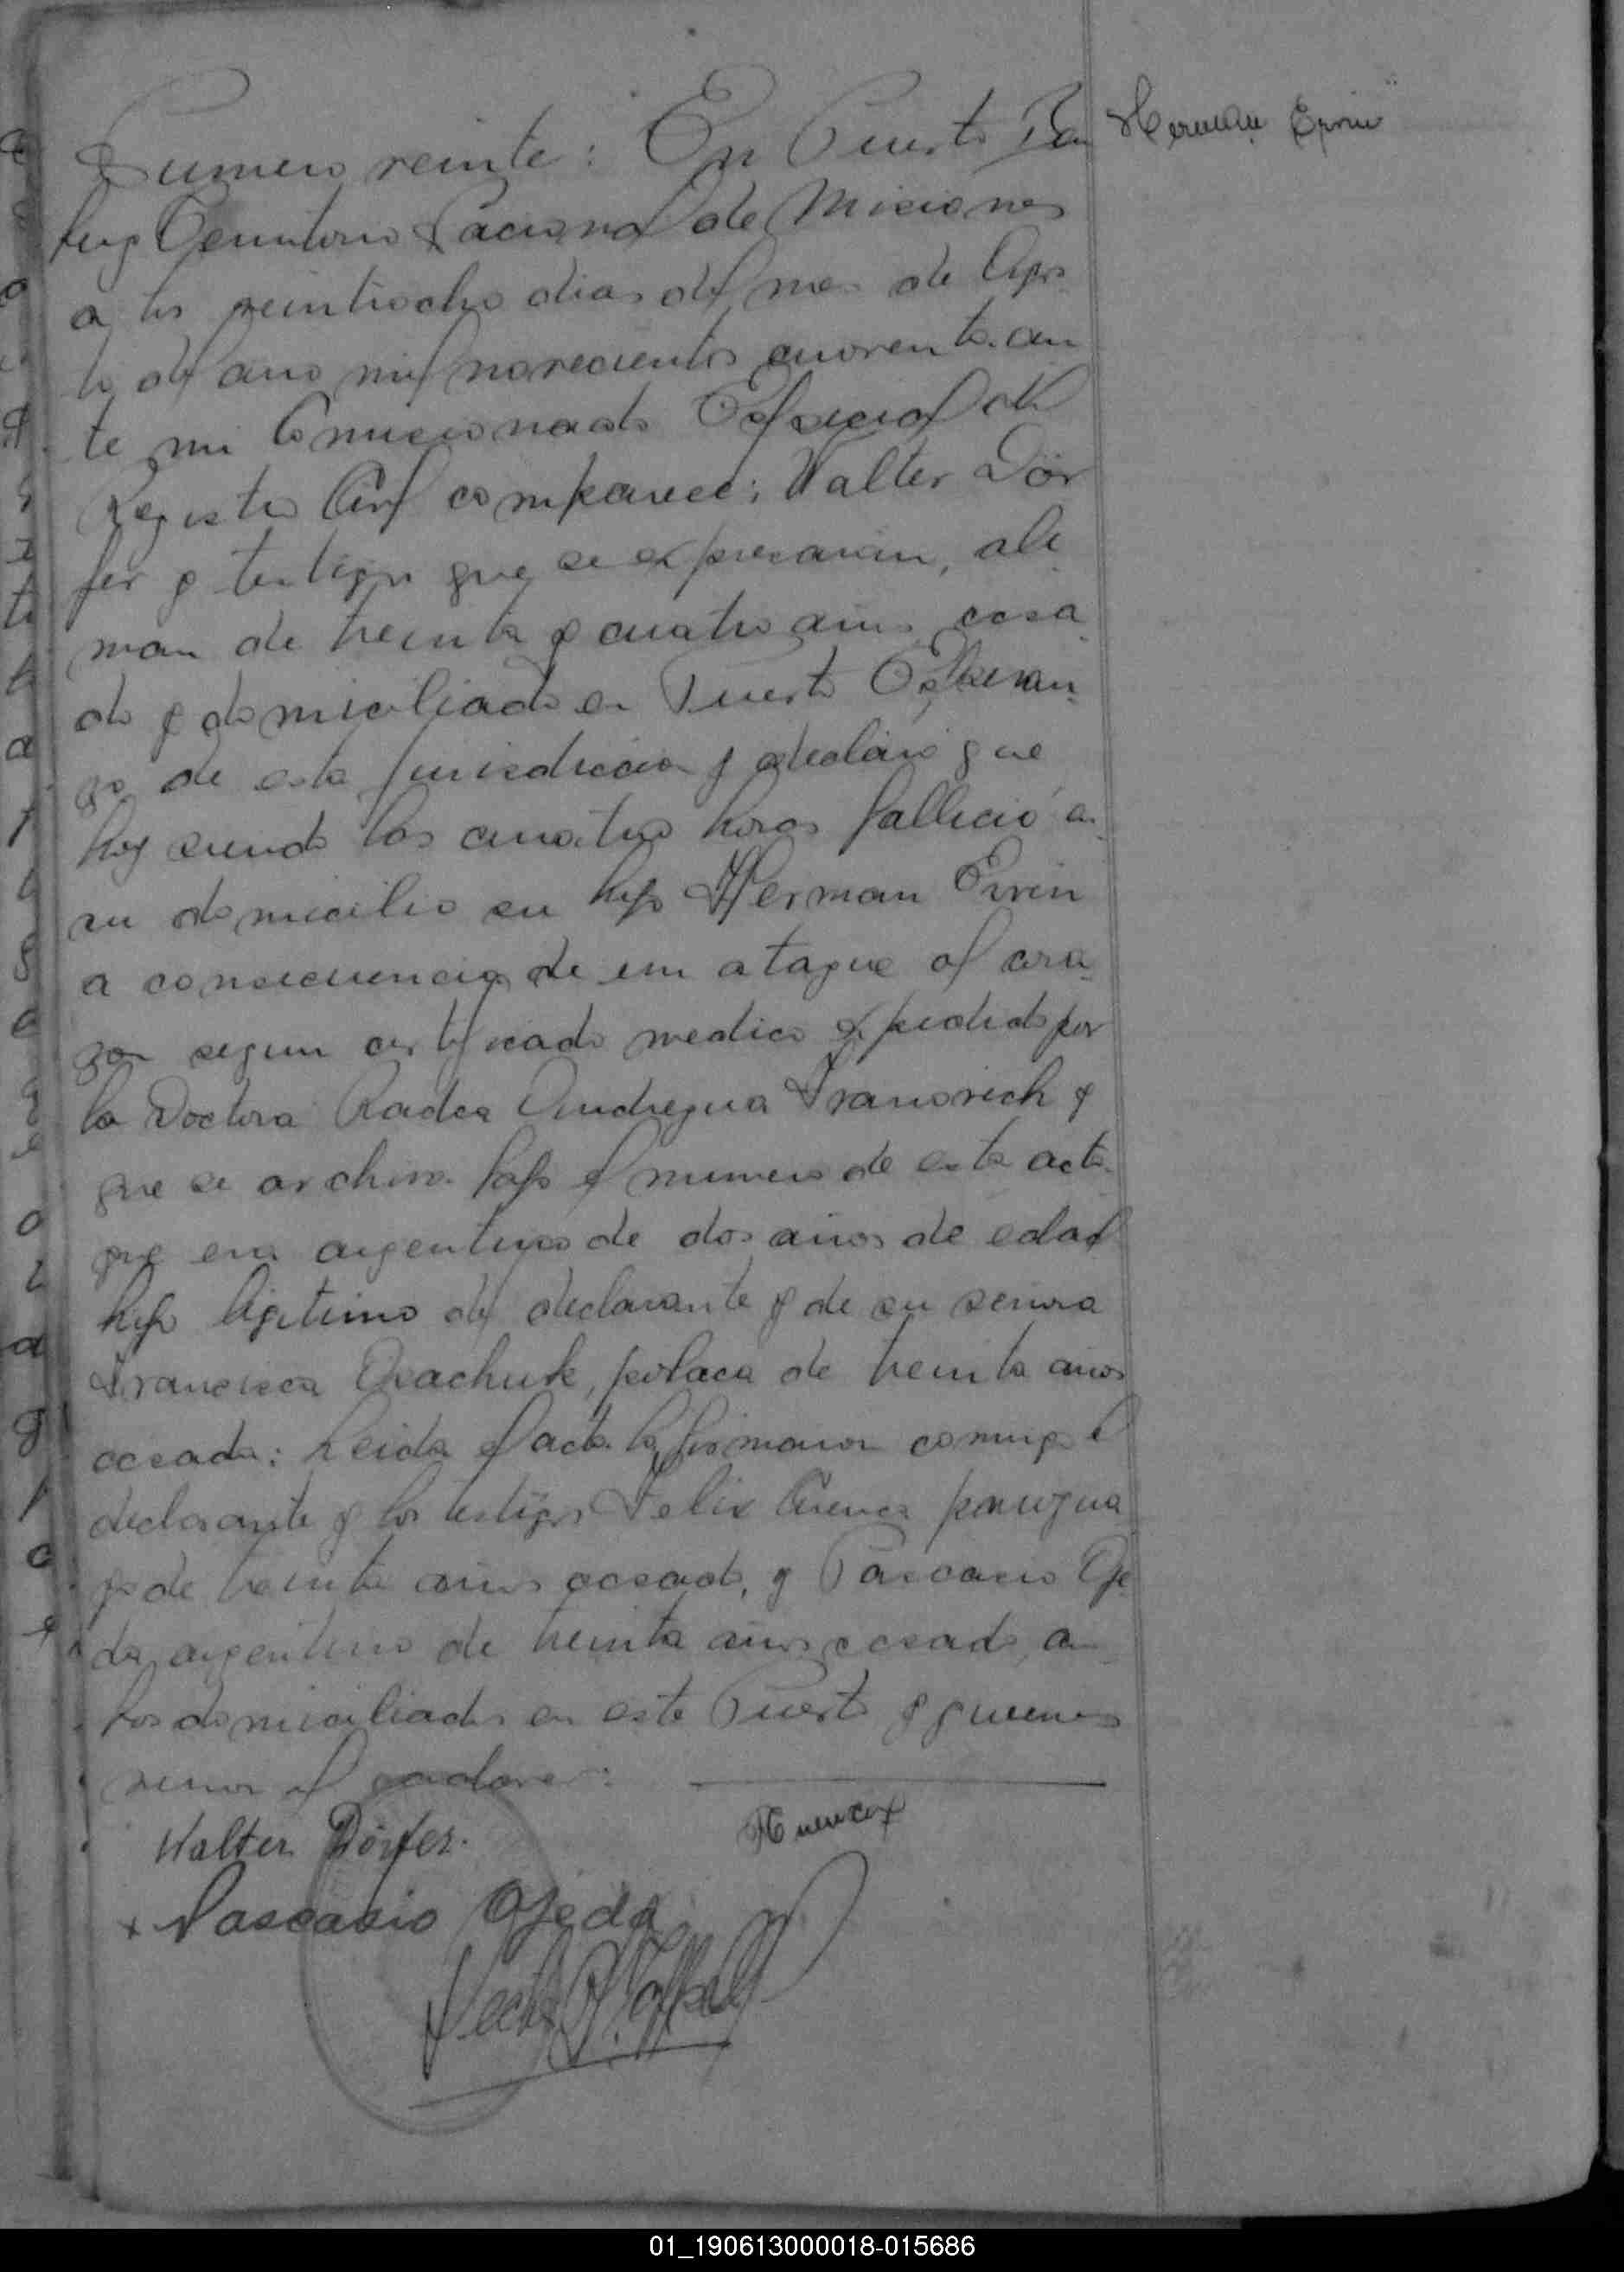 Herman Erwin
Numero veinte: En Puerto
Territorio Nacional de Misiones
a los veintiocho dias del mes de Agos
to del año mil novecientos cuarenta. an
te mi Comisionado Especial del
Registro Civil comparece: Walter Dör
fer y testigos que se expresaran, ale
man de treinta y cuatro años casa
do y domiciliado en Puerto
go de esta jurisdicion y declaró que
hoy siendo las cuatro horas fallició en
su domicilio su hijo Herman Erwin
a consecuencia de un ataque al cora
zon segun certificado medico expedido por
la Doctora Radca
que se archiva bajo el numero de esta acta
que era argentino de dos años de edad
hijo ligitimo del declarante y de su señora
Francisca Osachuk, polaca de treinta años
casada: Leida el acta la firmaron conmigo el
declarante y los testigos Felix Cuenca paragua
yo de treinta años casado, y Pascacio Oje
da argentino de treinta años casado, am
bos domiciliados en este Puerto y quienes
vieron el cadaver:
Walter Dörfer.
Pascasio Ojeda
01_190613000018-015686